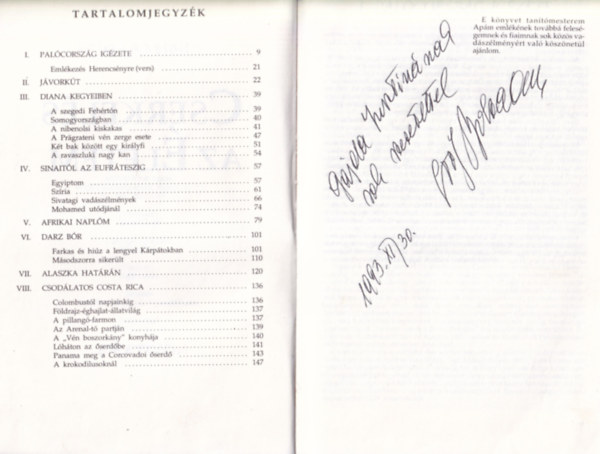 TARTALOMJEGYZÉK
I. PALÓCORSZÁG IGÉZETE 9
Emlékezés Herencsényre (vers) 21
II. JÁVORKÚT 22
III. DIANA KEGYEIBEN 39
A szegedi Fehértón 39
Somogyországban 40
A nibenolsi kiskakas 41
A Prágrateni vén zerge esete 47
Két bak között egy királyfi 51
A ravaszluki nagy kan 54
IV. SINAITÓL AZ EUFRÁTESZIG 57
Egyiptom 57
Szíria 61
Sivatagi vadászélmények 66
Mohamed utódjánál 74
V. AFRIKAI NAPLÓM 79
VI. DARZ BÓR 101
Farkas és hiúz a lengyel Kárpátokban 101
Másodszorra sikerült 110
VII. ALASZKA HATÁRÁN 120
VIII. CSODÁLATOS COSTA RICA 136
Colombustól napjainkig 136
Földrajz-éghajlat-állatvilág 137
A pillangó-farmon 137
Az Arenal-tó partján 139
A „Vén boszorkány" konyhája 140
Lóháton az őserdőbe 141
Panama meg a Corcovadoi őserdő 143
A krokodilusoknál 147
E könyvet tanítómesterem
Apám emlékének továbbá felesé-
gemnek és fiaimnak sok közös va-
dászélményért való köszönetül
ajánlom.
sok szeretettel
1993. XI. 30.